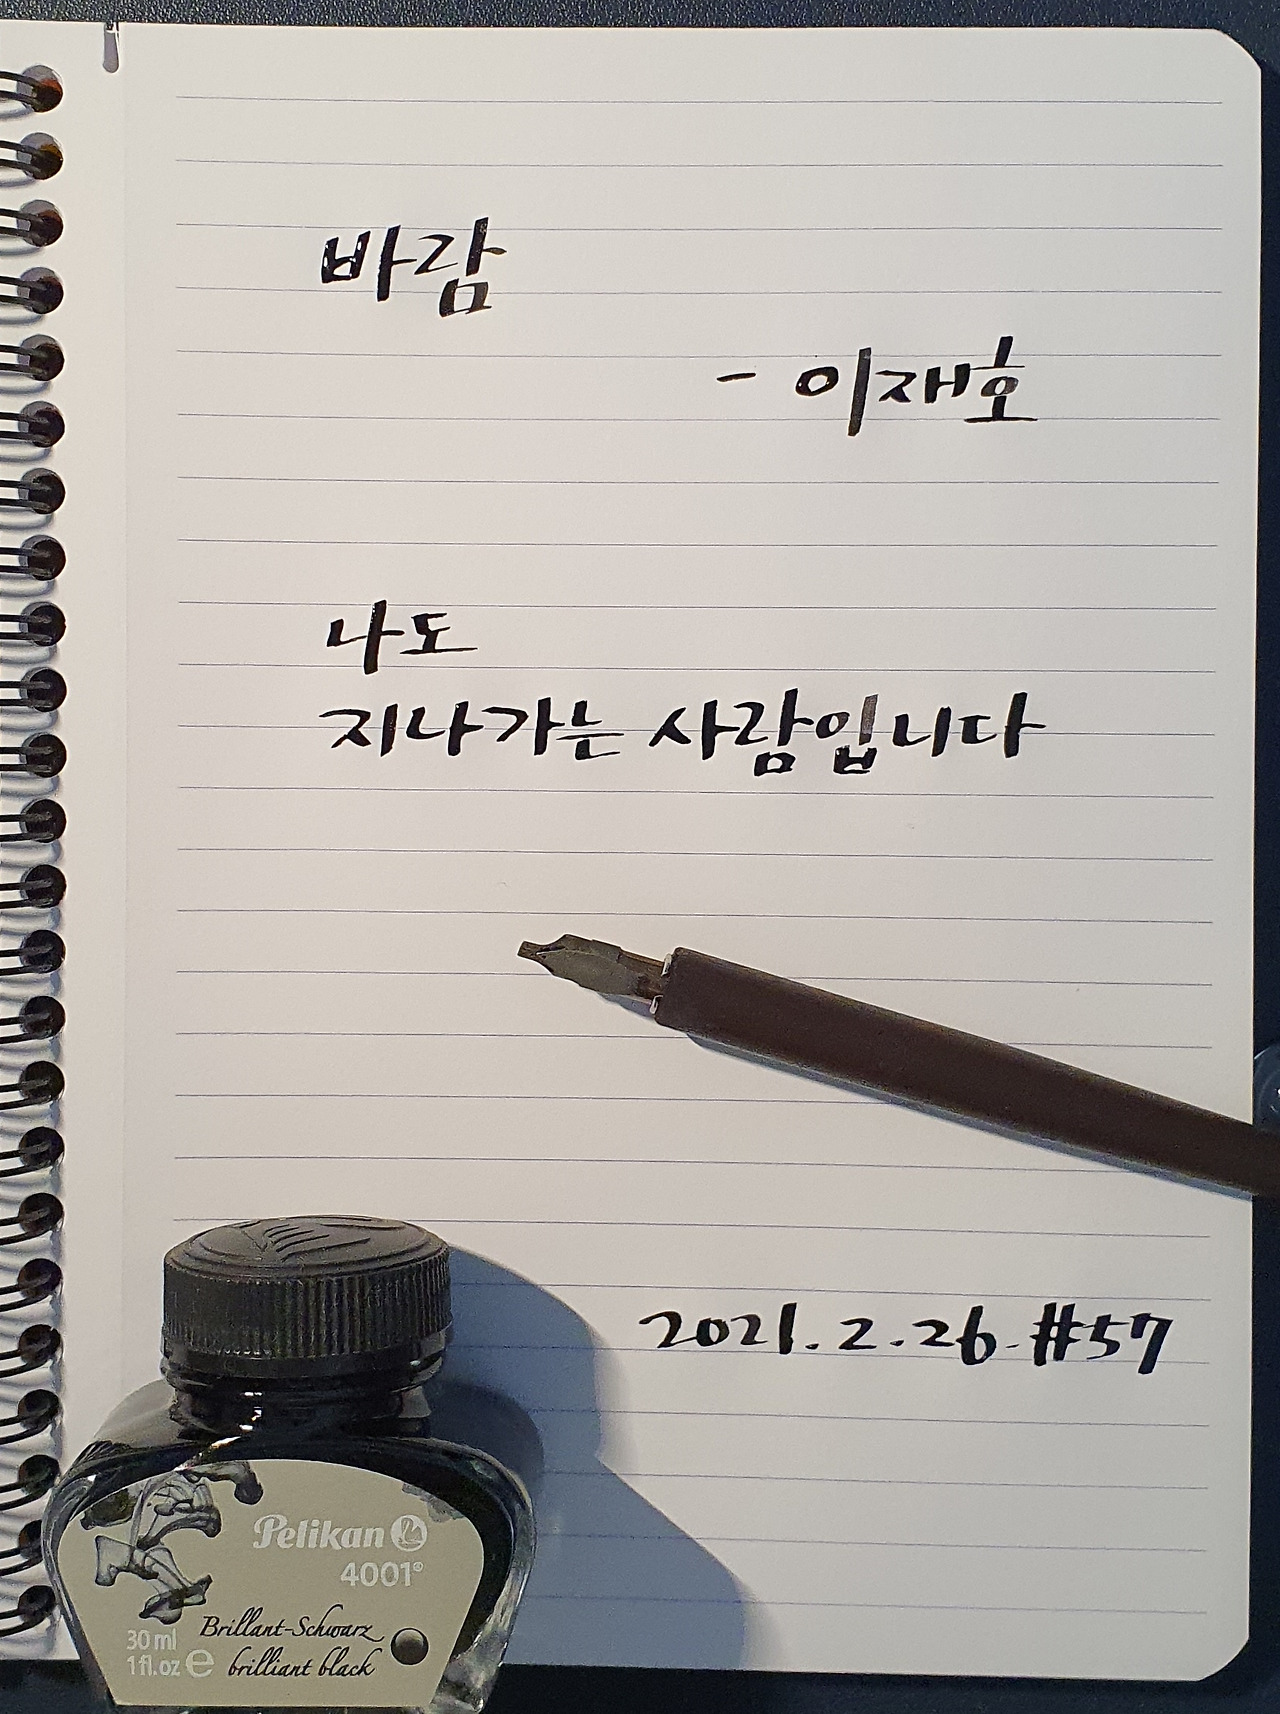 바람
- 이재호
나도
지나가는 사람입니다
2021.2.26. #57
Pelikan
4001®
Brillant-Schwarz
brilliant black
30 ml
1 fl.oz e